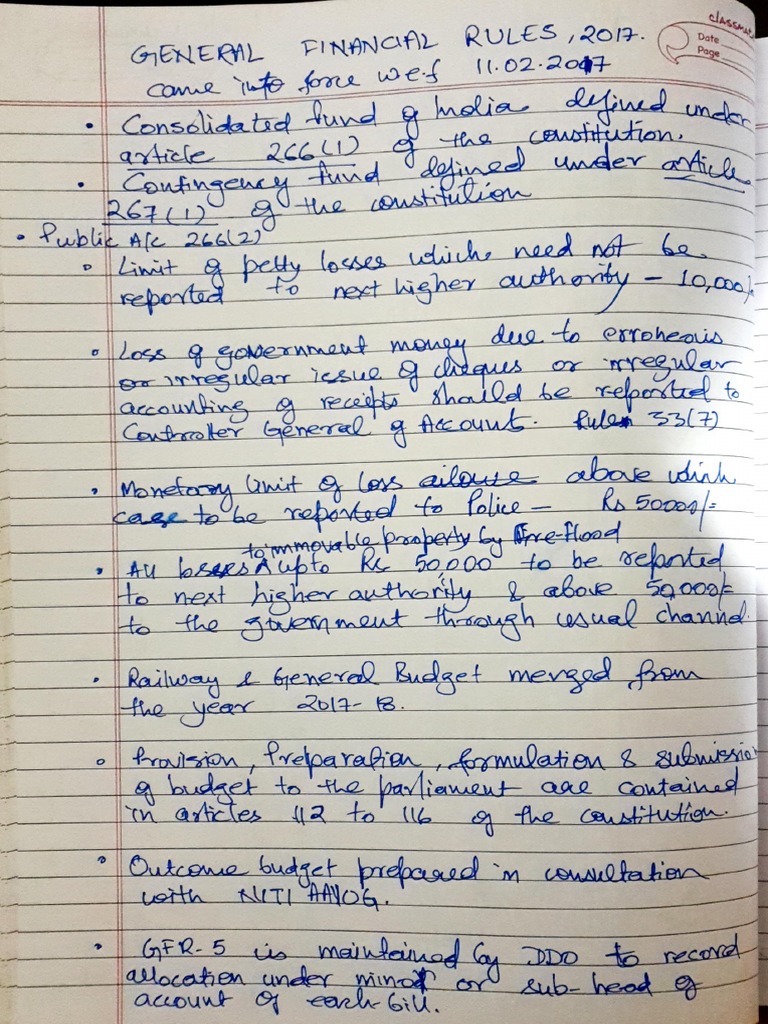 classmate
Date
Page
GENERAL FINANCIAL RULES, 2017.
came into force wef 11.02.2017
• Consolidated fund of India defined under
article 266(1) of the constitution.
• Contingency fund defined under article
267(1) of the constitution
• Public A/c 266(2)
• Limit of petty losses which need not be
reported to next higher authority - 10,000/-
• Loss of government money due to erroneous
or irregular issue of cheques or irregular
accounting of receipts should be reported to
Controller General of Account. Rule 33(7)
• Monetary limit of loss above which
case to be reported to Police - Rs 50000/=
to immovable property by Fire-flood
• All losses ^ upto Rs 50,000 to be reported
to next higher authority & above 50,000/-
to the government through usual channel.
• Railway & General Budget merged from
the year 2017-18.
• Provision, Preparation, formulation & submission
of budget to the parliament are contained
in articles 112 to 116 of the constitution.
• Outcome budget prepared in consultation
with NITI AAYOG.
• GFR-5 is maintained by DDO to record
allocation under minor or sub-head of
account of each bill.